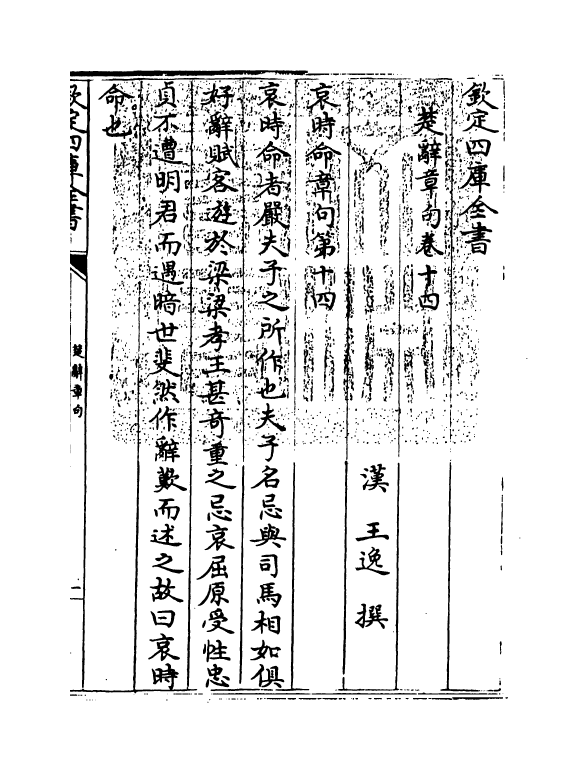 欽定四庫全書
楚辭章句卷十四
漢 王逸 撰
哀時命章句第十四
哀時命者嚴夫子之所作也夫子名忌與司馬相如俱
好辭賦客遊於梁梁孝王甚奇重之忌哀屈原受性忠
貞不遭明君而遇暗世斐然作辭歎而述之故曰哀時
命也
欽定四庫全書
楚辭章句
一